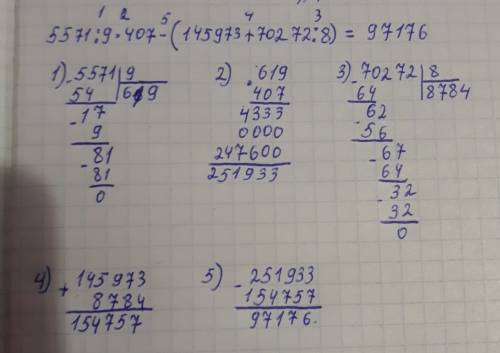 1 2 5 4 3
5571:9·407-(145973+70272:8) = 97176
1) -5571 | 9
54 | 619
-17
9
-81
81
0
2) ·619
407
4333
0000
247600
251933
3) -70272 | 8
64 | 8784
-62
56
-67
64
-32
32
0
4) +145973
8784
154757
5) -251933
154757
97176.